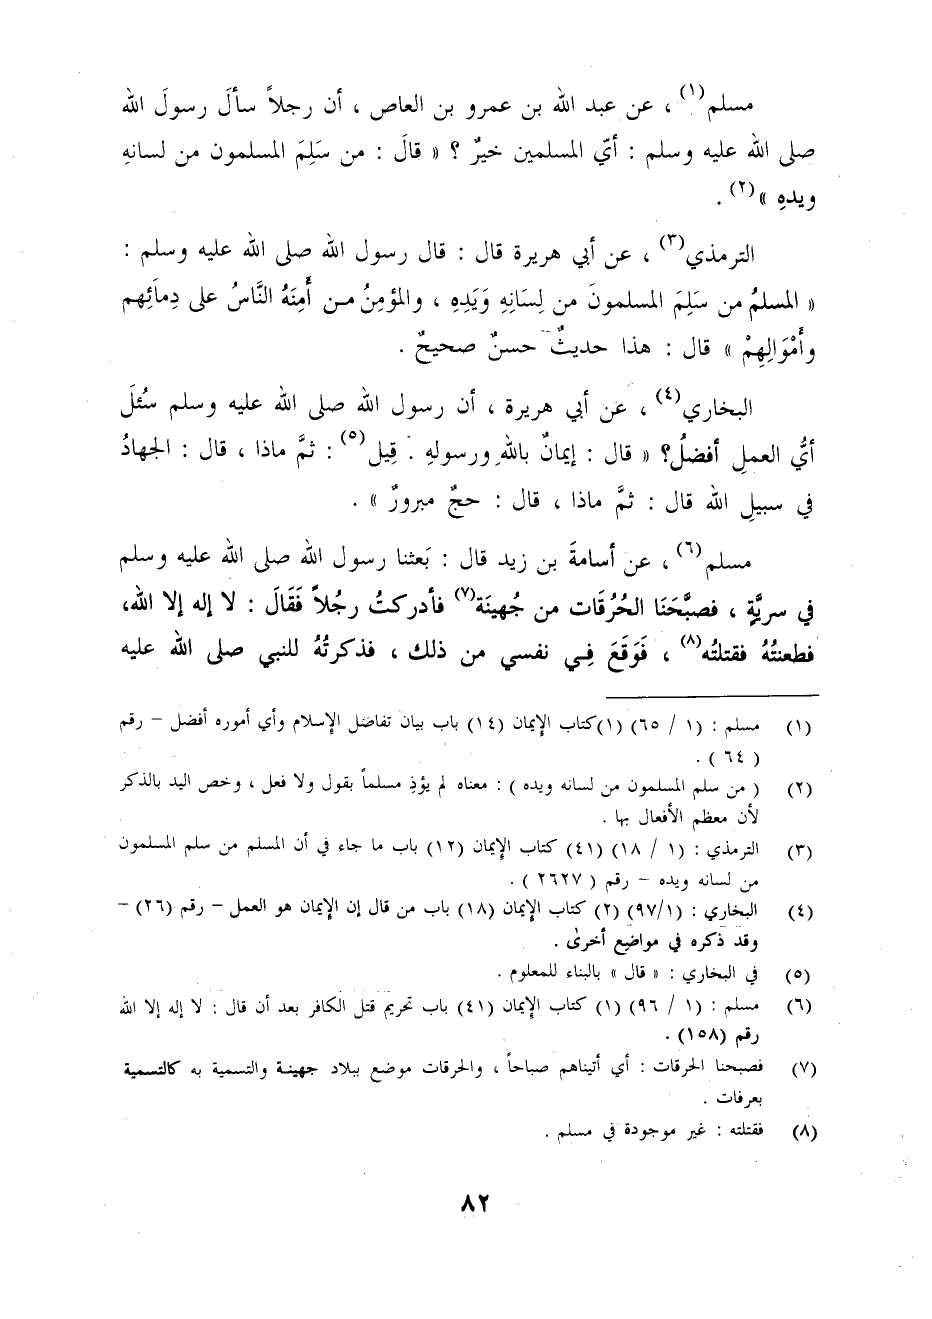 مسلم(١) ، عن عبد الله بن عمرو بن العاص ، أن رجلاً سألَ رسولَ الله
صلى الله عليه وسلم : أيّ المسلمين خيرٌ ؟ « قالَ : من سَلِمَ المسلمون من لسانهِ
ويدهِ »(٢) .
الترمذي(٣) ، عن أبي هريرة قال : قال رسول الله صلى الله عليه وسلم :
« المسلمُ من سَلِمَ المسلمونَ من لِسَانِهِ وَيَدِهِ ، والمؤمِنُ مـن أَمِنَهُ النَّاسُ على دِمائِهم
وأَمْوَالِهِمْ » قال : هذا حديثٌ حسنٌ صحيحٌ .
البخاري(٤) ، عن أبي هريرة ، أن رسول الله صلى الله عليه وسلم سُئلَ
أيُّ العملِ أفضلُ؟ « قال : إيمانٌ باللهِ ورسولهِ . قِيل(٥) : ثمَّ ماذا ، قال : الجهادُ
في سبيلِ الله قال : ثمَّ ماذا ، قال : حجٌ مبرورٌ » .
مسلم(٦) ، عن أسامةَ بن زيد قال : بَعثنا رسول الله صلى الله عليه وسلم
في سريَّةٍ ، فصبَّحَنَا الحُرُقَات من جُهينَة(٧) فأدركتُ رجُلاً فَقَالَ : لا إله إلا الله،
فطعنتُهُ فقتلتُه(٨) ، فَوَقَعَ فِـي نفسي من ذلك ، فذكرتُهُ للنبي صلى الله عليه
(١) مسلم : (١ / ٦٥) (١)كتاب الإيمان (١٤) باب بيان تفاضل الإسلام وأي أموره أفضل – رقم
( ٦٤ ) .
(٢) ( من سلم المسلمون من لسانه ويده ) : معناه لم يؤذِ مسلماً بقول ولا فعل ، وخص اليد بالذكر
لأن معظم الأفعال بها .
(٣) الترمذي : (١ / ١٨) (٤١) كتاب الإيمان (١٢) باب ما جاء في أن المسلم من سلم المسلمون
من لسانه ويده – رقم ( ٢٦٢٧ ) .
(٤) البخاري : (٩٧/١) (٢) كتاب الإيمان (١٨) باب من قال إن الإيمان هو العمل – رقم (٢٦) –
وقد ذكره في مواضع أخرى .
(٥) في البخاري : « قال » بالبناء للمعلوم .
(٦) مسلم : (١ / ٩٦) (١) كتاب الإيمان (٤١) باب تحريم قتل الكافر بعد أن قال : لا إله إلا الله
رقم (١٥٨) .
(٧) فصبحنا الحرقات : أي أتيناهم صباحاً ، والحرقات موضع ببلاد جهينة والتسمية به كالتسمية
بعرفات .
(٨) فقتلته : غير موجودة في مسلم .
٨٢